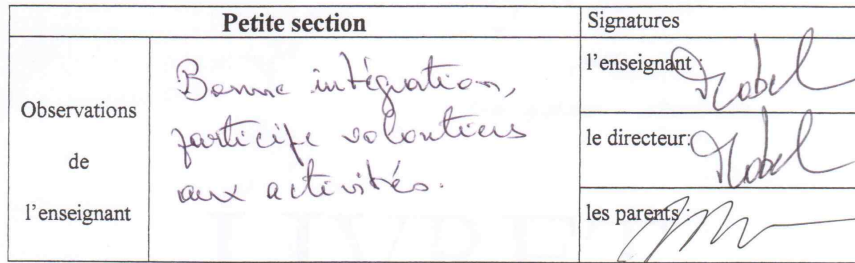 Petite section
Signatures
Observations
de
l'enseignant
Bonne intégration,
participe volontiers
aux activités.
l'enseignant :
le directeur:
les parents: